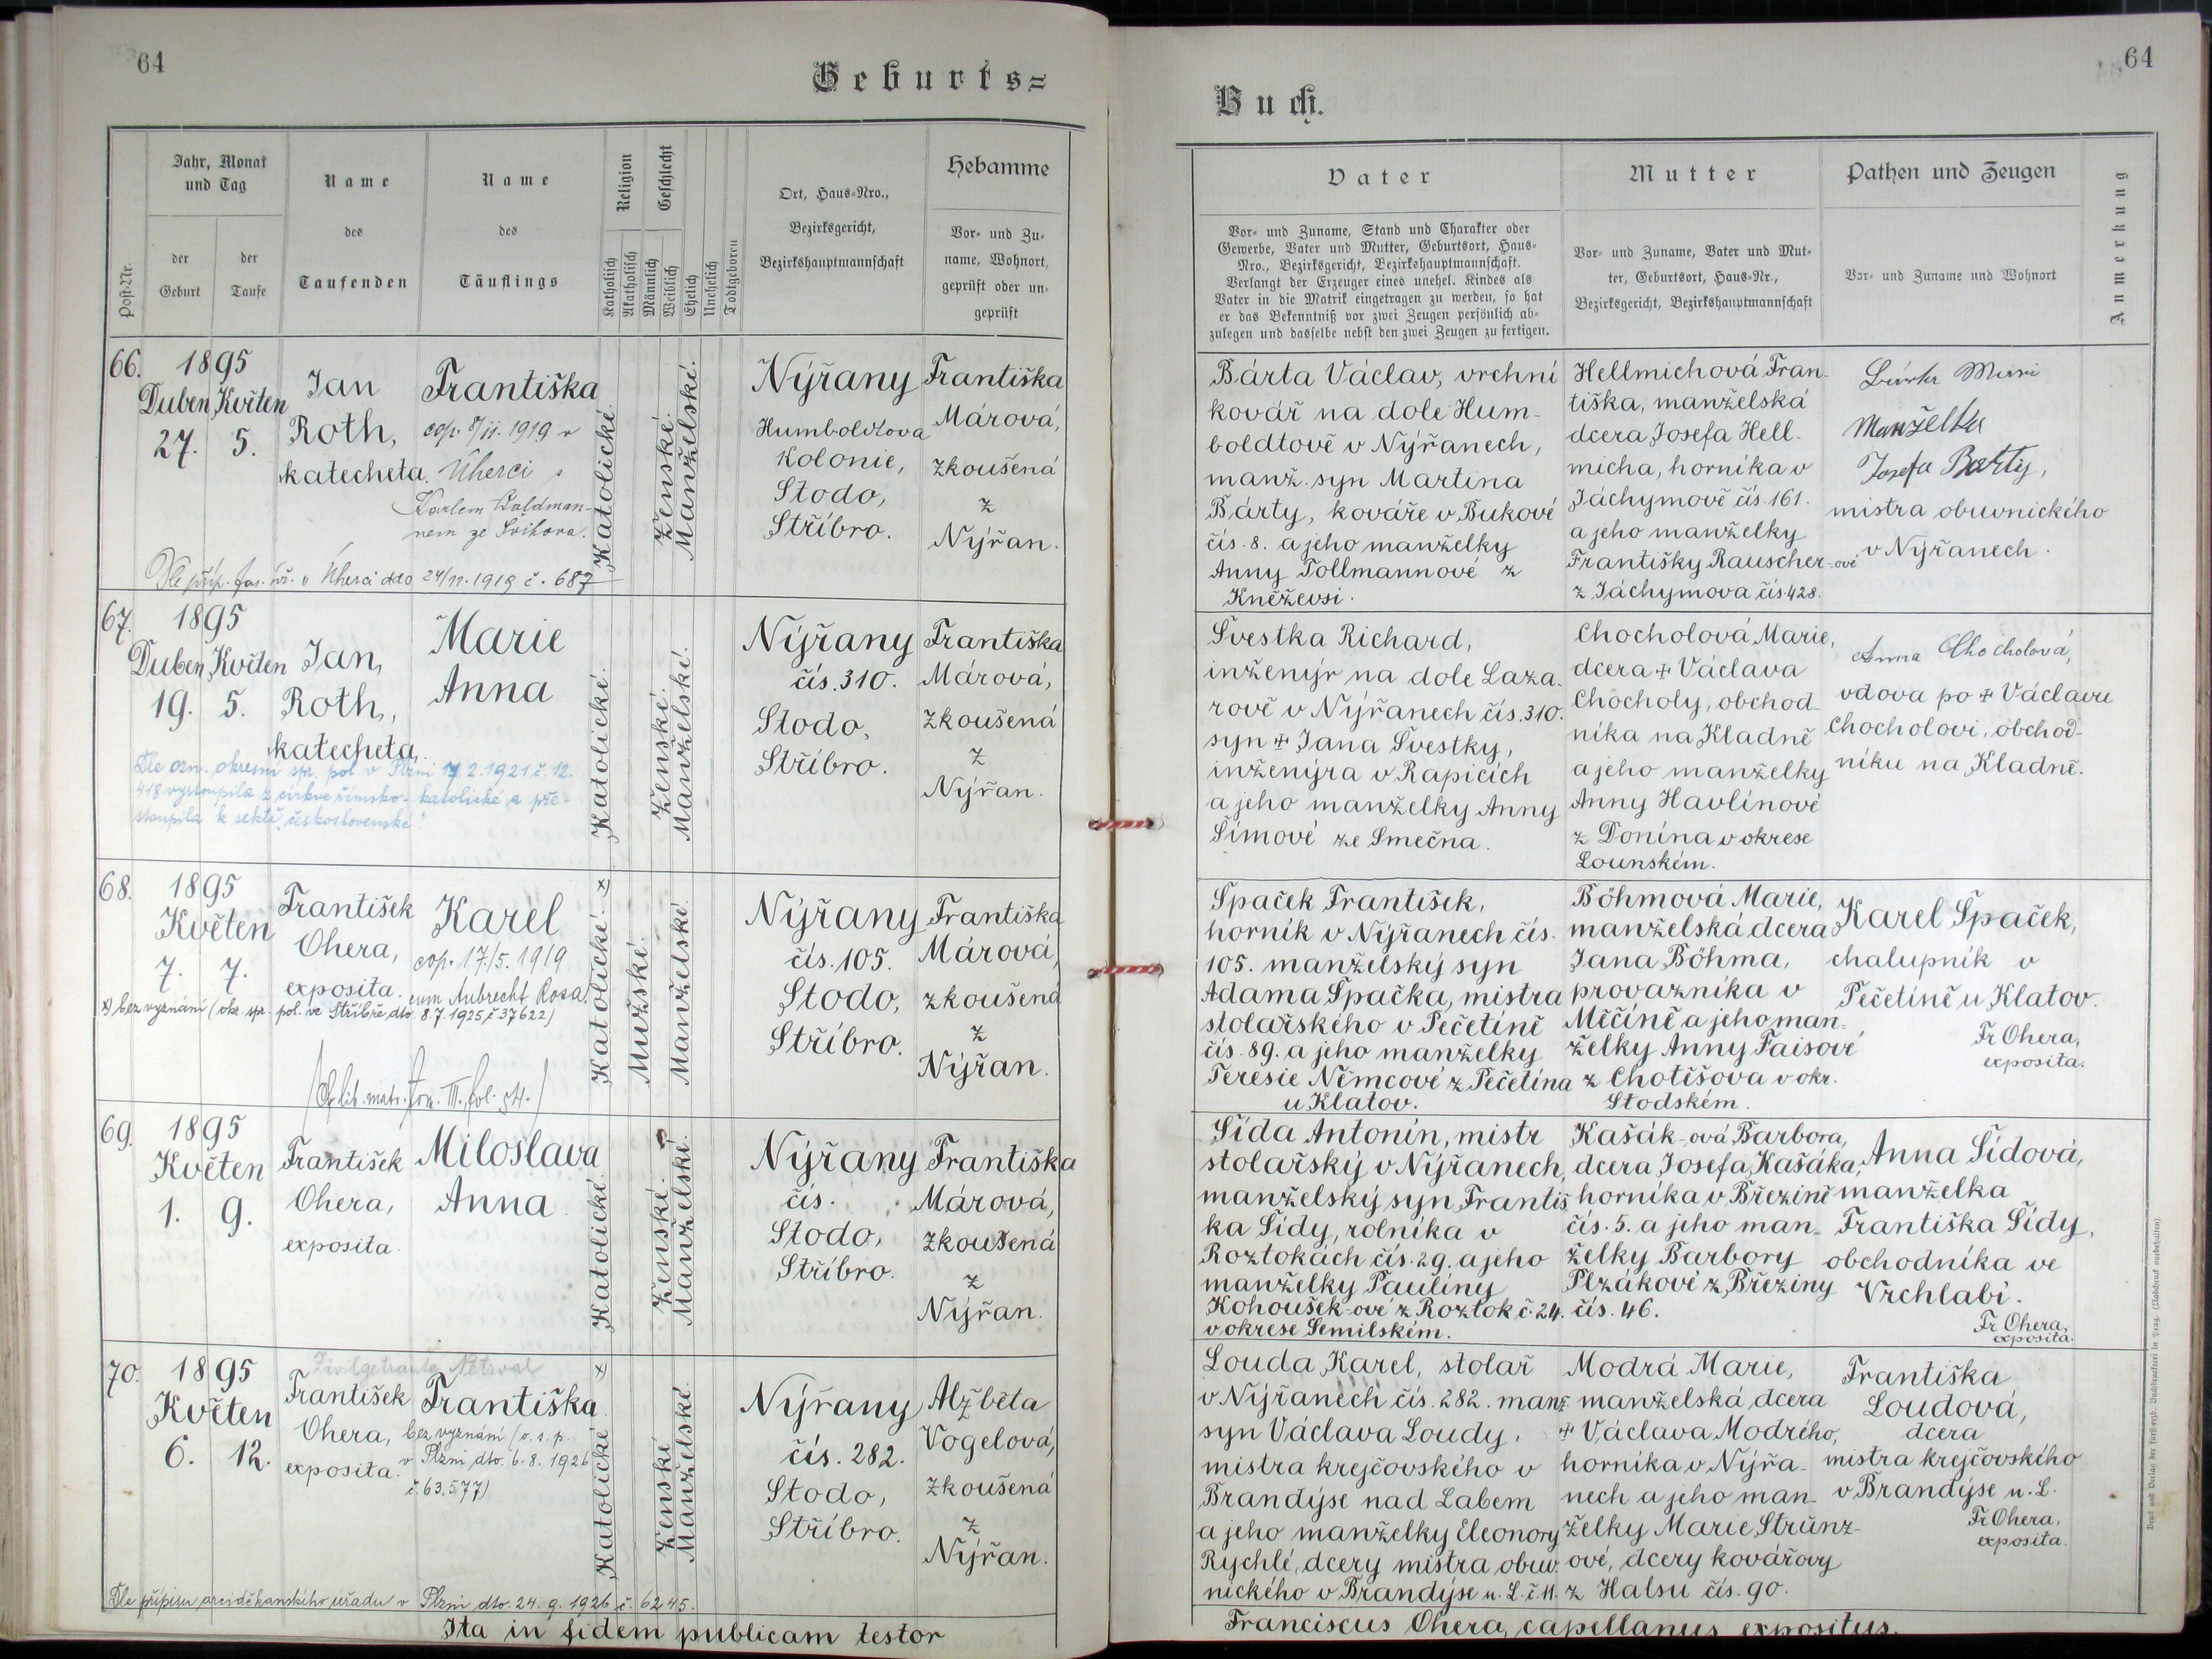 64
Geburts=
Jahr, Monat
und Tag
Name
Name
Religion
Geschlecht
Ort, Haus-Nro.,
Hebamme
des
des
Bezirksgericht,
Vor- und Zu-
Post-Nr.
der
Geburt
der
Taufe
Taufenden
Täuflings
Katholisch
Akatholisch
Männlich
Weiblich
Ehelich
Unehelich
Todtgeboren
Bezirkshauptmannschaft
name, Wohnort,
geprüft oder un-
geprüft
66.
1895
Duben Květen
27. 5.
Jan
Roth,
katecheta.
Františka
cop. 8/11. 1919 v
Úherci s
Karlem Waldman-
nem ze Svihova.
Dle příp. far. úř. v Úherci ddo 24/11. 1919 č. 687
Katolické.
Ženské.
Manželské.
Nýřany
Humboldtova
Kolonie,
Stodo,
Stříbro.
Františka
Márová,
zkoušená
z
Nýřan.
67.
1895
Duben Květen
19. 5.
Jan,
Roth,
katecheta.
Marie
Anna
Dle ozn. okresní spr. pol. v Plzni 17. 2. 1921 č. 12.
418 vystoupila z církve římsko-katolické a pře-
stoupila k sektě „československé"
Katolické.
Ženské.
Manželské.
Nýřany
čís. 310.
Stodo,
Stříbro.
Františka
Márová,
zkoušená
z
Nýřan.
68.
1895
Květen
7. 7.
František
Ohera,
exposita.
Karel
cop. 17./5. 1919
cum Aubrecht Rosa.
x) bez vyznání (okr. spr. pol. ve Stříbře dto 8. 7. 1925, č 37622)
Katolické. x)
Mužské.
Manželské.
Nýřany
čís. 105.
Stodo,
Stříbro.
Františka
Márová,
zkoušená
z
Nýřan.
69.
1895
Květen
1. 9.
František
Ohera,
exposita.
Miloslava
Anna.
Katolické.
Ženské.
Manželské.
Nýřany
čís.
Stodo,
Stříbro.
Františka
Márová,
zkoušená
z
Nýřan.
70.
1895
Květen
6. 12.
Zivilgetraute Netrval
František
Ohera,
exposita.
Františka
bez vyznání (o. s. p.
v Plzni dto. 6. 8. 1926
č. 63.577)
Katolické x
Ženské
Manželské.
Nýřany
čís. 282.
Stodo,
Stříbro.
Alžběta
Vogelová,
zkoušená
z
Nýřan.
Dle přípisu arciděkanského úřadu v Plzni dto. 24. 9. 1926 č. 6245.
Ita in fidem publicam testor
64
Buch.
Vater
Mutter
Pathen und Zeugen
Anmerkung
Vor- und Zuname, Stand und Charakter oder
Gewerbe, Vater und Mutter, Geburtsort, Haus-
Nro., Bezirksgericht, Bezirkshauptmannschaft.
Verlangt der Erzeuger eines unehel. Kindes als
Vater in die Matrik eingetragen zu werden, so hat
er das Bekenntniß vor zwei Zeugen persönlich ab-
zulegen und dasselbe nebst den zwei Zeugen zu fertigen.
Vor- und Zuname, Vater und Mut-
ter, Geburtsort, Haus-Nr.,
Bezirksgericht, Bezirkshauptmannschaft
Vor- und Zuname und Wohnort
Bárta Václav, vrchní
kovář na dole Hum-
boldtově v Nýřanech,
manž. syn Martina
Bárty, kováře v Bukové
čís. 8. a jeho manželky
Anny Tollmannové z
Kněževsi.
Hellmichová Fran-
tiška, manželská
dcera Josefa Hell-
micha, horníka v
Jáchymově čís. 161.
a jeho manželky
Františky Rauscher-ové
z Jáchymova čís. 428.
Bárta Mari
Manželka
Josefa Barty,
mistra obuvnického
v Nýřanech.
Švestka Richard,
inženýr na dole Laza-
rově v Nýřanech čís. 310.
syn + Jana Švestky,
inženýra v Rapicích
a jeho manželky Anny
Šímové ze Smečna.
Chocholová Marie,
dcera + Václava
Chocholy, obchod-
níka na Kladně
a jeho manželky
Anny Havlínové
z Donína v okrese
Lounském.
Anna Chocholová,
vdova po + Václavu
Chocholovi, obchod-
níku na Kladně.
Špaček František,
horník v Nýřanech čís.
105. manželský syn
Adama Špačka, mistra
stolařského v Pečetíně
čís. 89. a jeho manželky
Teresie Němcové z Pečetína
u Klatov.
Böhmová Marie,
manželská dcera
Jana Böhma,
provazníka v
Měčíně a jeho man-
želky Anny Faisové
z Chotěšova v okr.
Stodském.
Karel Špaček,
chalupník v
Pečetíně u Klatov.
Fr Ohera,
exposita.
Šída Antonín, mistr
stolařský v Nýřanech,
manželský syn Františ
ka Šídy, rolníka v
Roztokách čís. 29. a jeho
manželky Paulíny
Kohoušek-ové z Roztok č. 24.
v okrese Semilském.
Kašák-ová Barbora,
dcera Josefa Kašáka,
horníka v Březině
čís. 5. a jeho man-
želky Barbory
Plzákové z Březiny
čís. 46.
Anna Šídová,
manželka
Františka Šídy,
obchodníka ve
Vrchlabí.
Fr Ohera,
exposita.
Louda Karel, stolař
v Nýřanech čís. 282. manž.
syn Václava Loudy,
mistra krejčovského v
Brandýse nad Labem
a jeho manželky Eleonory
Rychlé, dcery mistra obuv-
nického v Brandýse n. L. č. 11.
Modrá Marie,
manželská dcera
+ Václava Modrého,
horníka v Nýřa-
nech a jeho man-
želky Marie Strünz-
ové, dcery kovářovy
z Halsu čís. 90.
Františka
Loudová,
dcera
mistra krejčovského
v Brandýse n. L.
Fr Ohera,
exposita.
Franciscus Ohera, capellanus expositus.